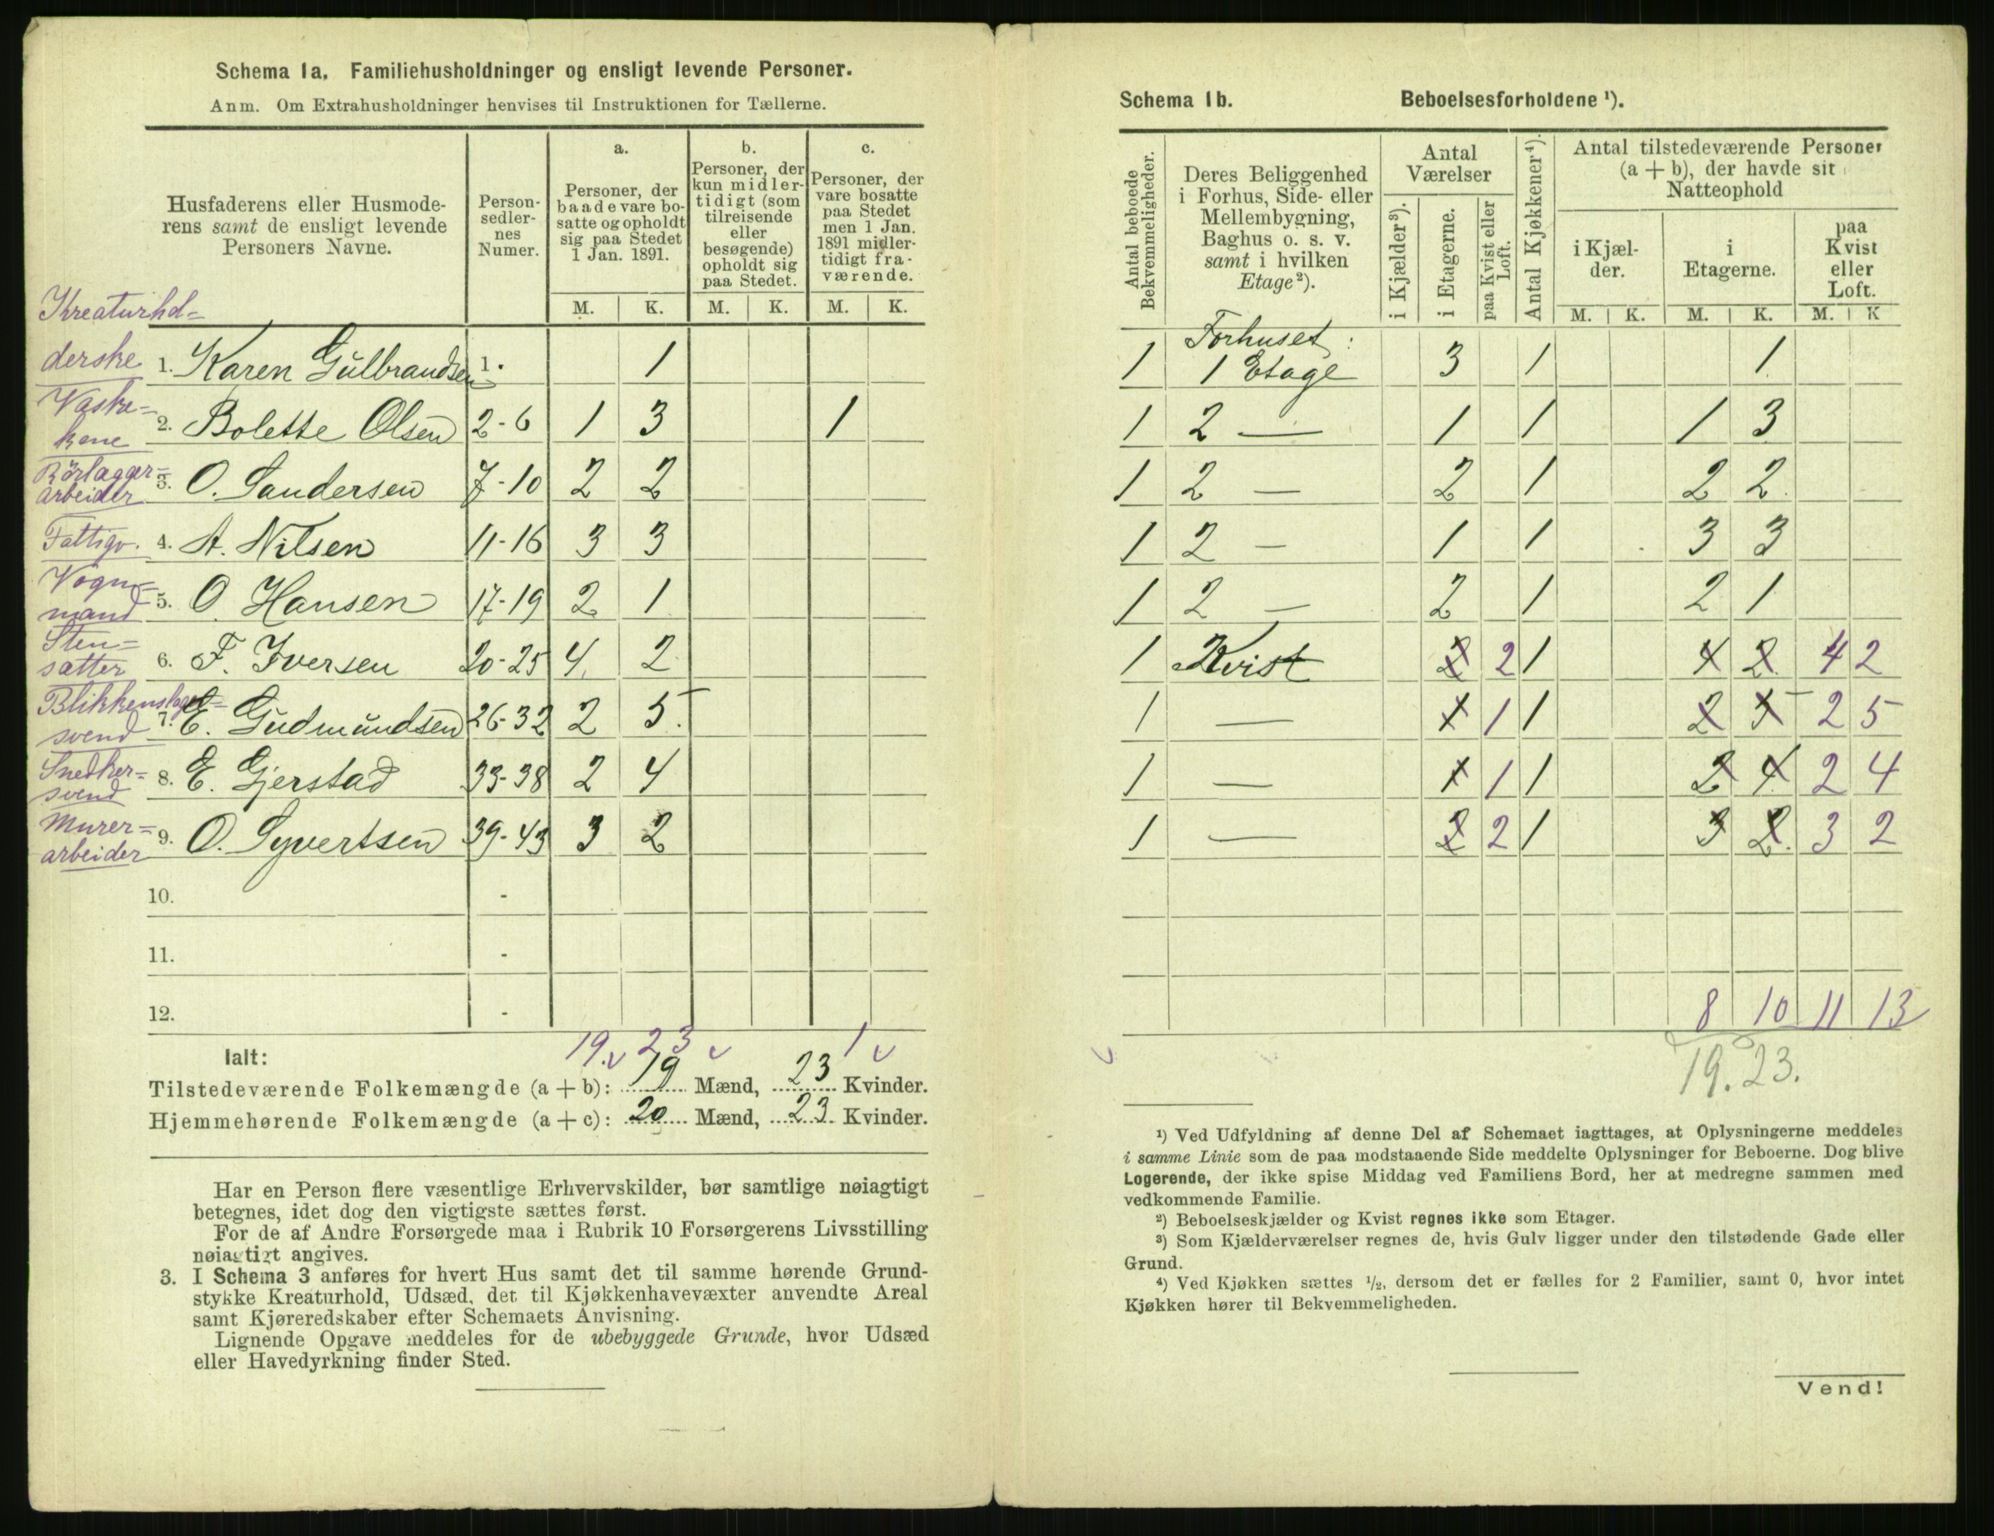 Schema 1a. Familiehusholdninger og ensligt levende Personer.
Anm. Om Extrahusholdninger henvises til Instruktionen for Tællerne.
Husfaderens eller Husmode-
rens samt de ensligt levende
Personers Navne.
Person-
sedler-
nes
Numer.
a.
Personer, der
baade vare bo-
satte og opholdt
sig paa Stedet
1 Jan. 1891.
b.
Personer, der
kun midler-
tidigt (som
tilreisende
eller
besøgende)
opholdt sig
paa Stedet.
c.
Personer, der
vare bosatte
paa Stedet
men 1 Jan.
1891 midler-
tidigt fra-
værende.
M. K. M. K. M. K.
Kreaturhol=
derske 1. Karen Gulbrandsen 1. 1
Vaske=
kone 2. Bolette Olsen 2-6 1 3 1
Rörlægger=
arbeider 3. O. Sandersen 7-10 2 2
Fattigv. 4. A. Nilsen 11-16 3 3
Vogn=
mand 5. O. Hansen 17-19 2 1
Sten=
sætter 6. F. Iversen 20-25 4 2
Blikkenslager=
svend 7. E. Gudmundsen 26-32 2 5
Snedker=
svend 8. E. Gjerstad 33-38 2 4
Murer=
arbeider 9. O. Syvertsen 39-43 3 2
10. -
11. -
12. -
19. 23 1
Ialt:
Tilstedeværende Folkemængde (a + b): 19 Mænd, 23 Kvinder.
Hjemmehørende Folkemængde (a + c): 20 Mænd, 23 Kvinder.
Har en Person flere væsentlige Erhvervskilder, bør samtlige nøiagtigt
betegnes, idet dog den vigtigste sættes først.
For de af Andre Forsørgede maa i Rubrik 10 Forsørgerens Livsstilling
nøiagtigt angives.
3. I Schema 3 anføres for hvert Hus samt det til samme hørende Grund-
stykke Kreaturhold, Udsæd, det til Kjøkkenhavevæxter anvendte Areal
samt Kjøreredskaber efter Schemaets Anvisning.
Lignende Opgave meddeles for de ubebyggede Grunde, hvor Udsæd
eller Havedyrkning finder Sted.
Schema 1b. Beboelsesforholdene ¹).
Antal beboede
Bekvemmeligheder.
Deres Beliggenhed
i Forhus, Side- eller
Mellembygning,
Baghus o. s. v.
samt i hvilken
Etage²).
Antal
Værelser
i Kjælder³).
i Etagerne.
paa Kvist eller
Loft.
Antal Kjøkkener⁴).
Antal tilstedeværende Personer
(a + b), der havde sit
Natteophold
i Kjæl-
der.
i
Etagerne.
paa
Kvist
eller
Loft.
M. K. M. K. M. K
Forhuset:
1 1 Etage 3 1 1
1 2 — 1 1 1 3
1 2 — 2 1 2 2
1 2 — 1 1 3 3
1 2 — 2 1 2 1
1 Kvist 2 2 1 4 2 4 2
1 — 1 1 1 2 5 2 5
1 — 1 1 1 2 4 2 4
1 — 2 2 1 3 2 3 2
8 10 11 13
19. 23.
¹) Ved Udfyldning af denne Del af Schemaet iagttages, at Oplysningerne meddeles
i samme Linie som de paa modstaaende Side meddelte Oplysninger for Beboerne. Dog blive
Logerende, der ikke spise Middag ved Familiens Bord, her at medregne sammen med
vedkommende Familie.
²) Beboelseskjælder og Kvist regnes ikke som Etager.
³) Som Kjælderværelser regnes de, hvis Gulv ligger under den tilstødende Gade eller
Grund.
⁴) Ved Kjøkken sættes ½, dersom det er fælles for 2 Familier, samt 0, hvor intet
Kjøkken hører til Bekvemmeligheden.
Vend!